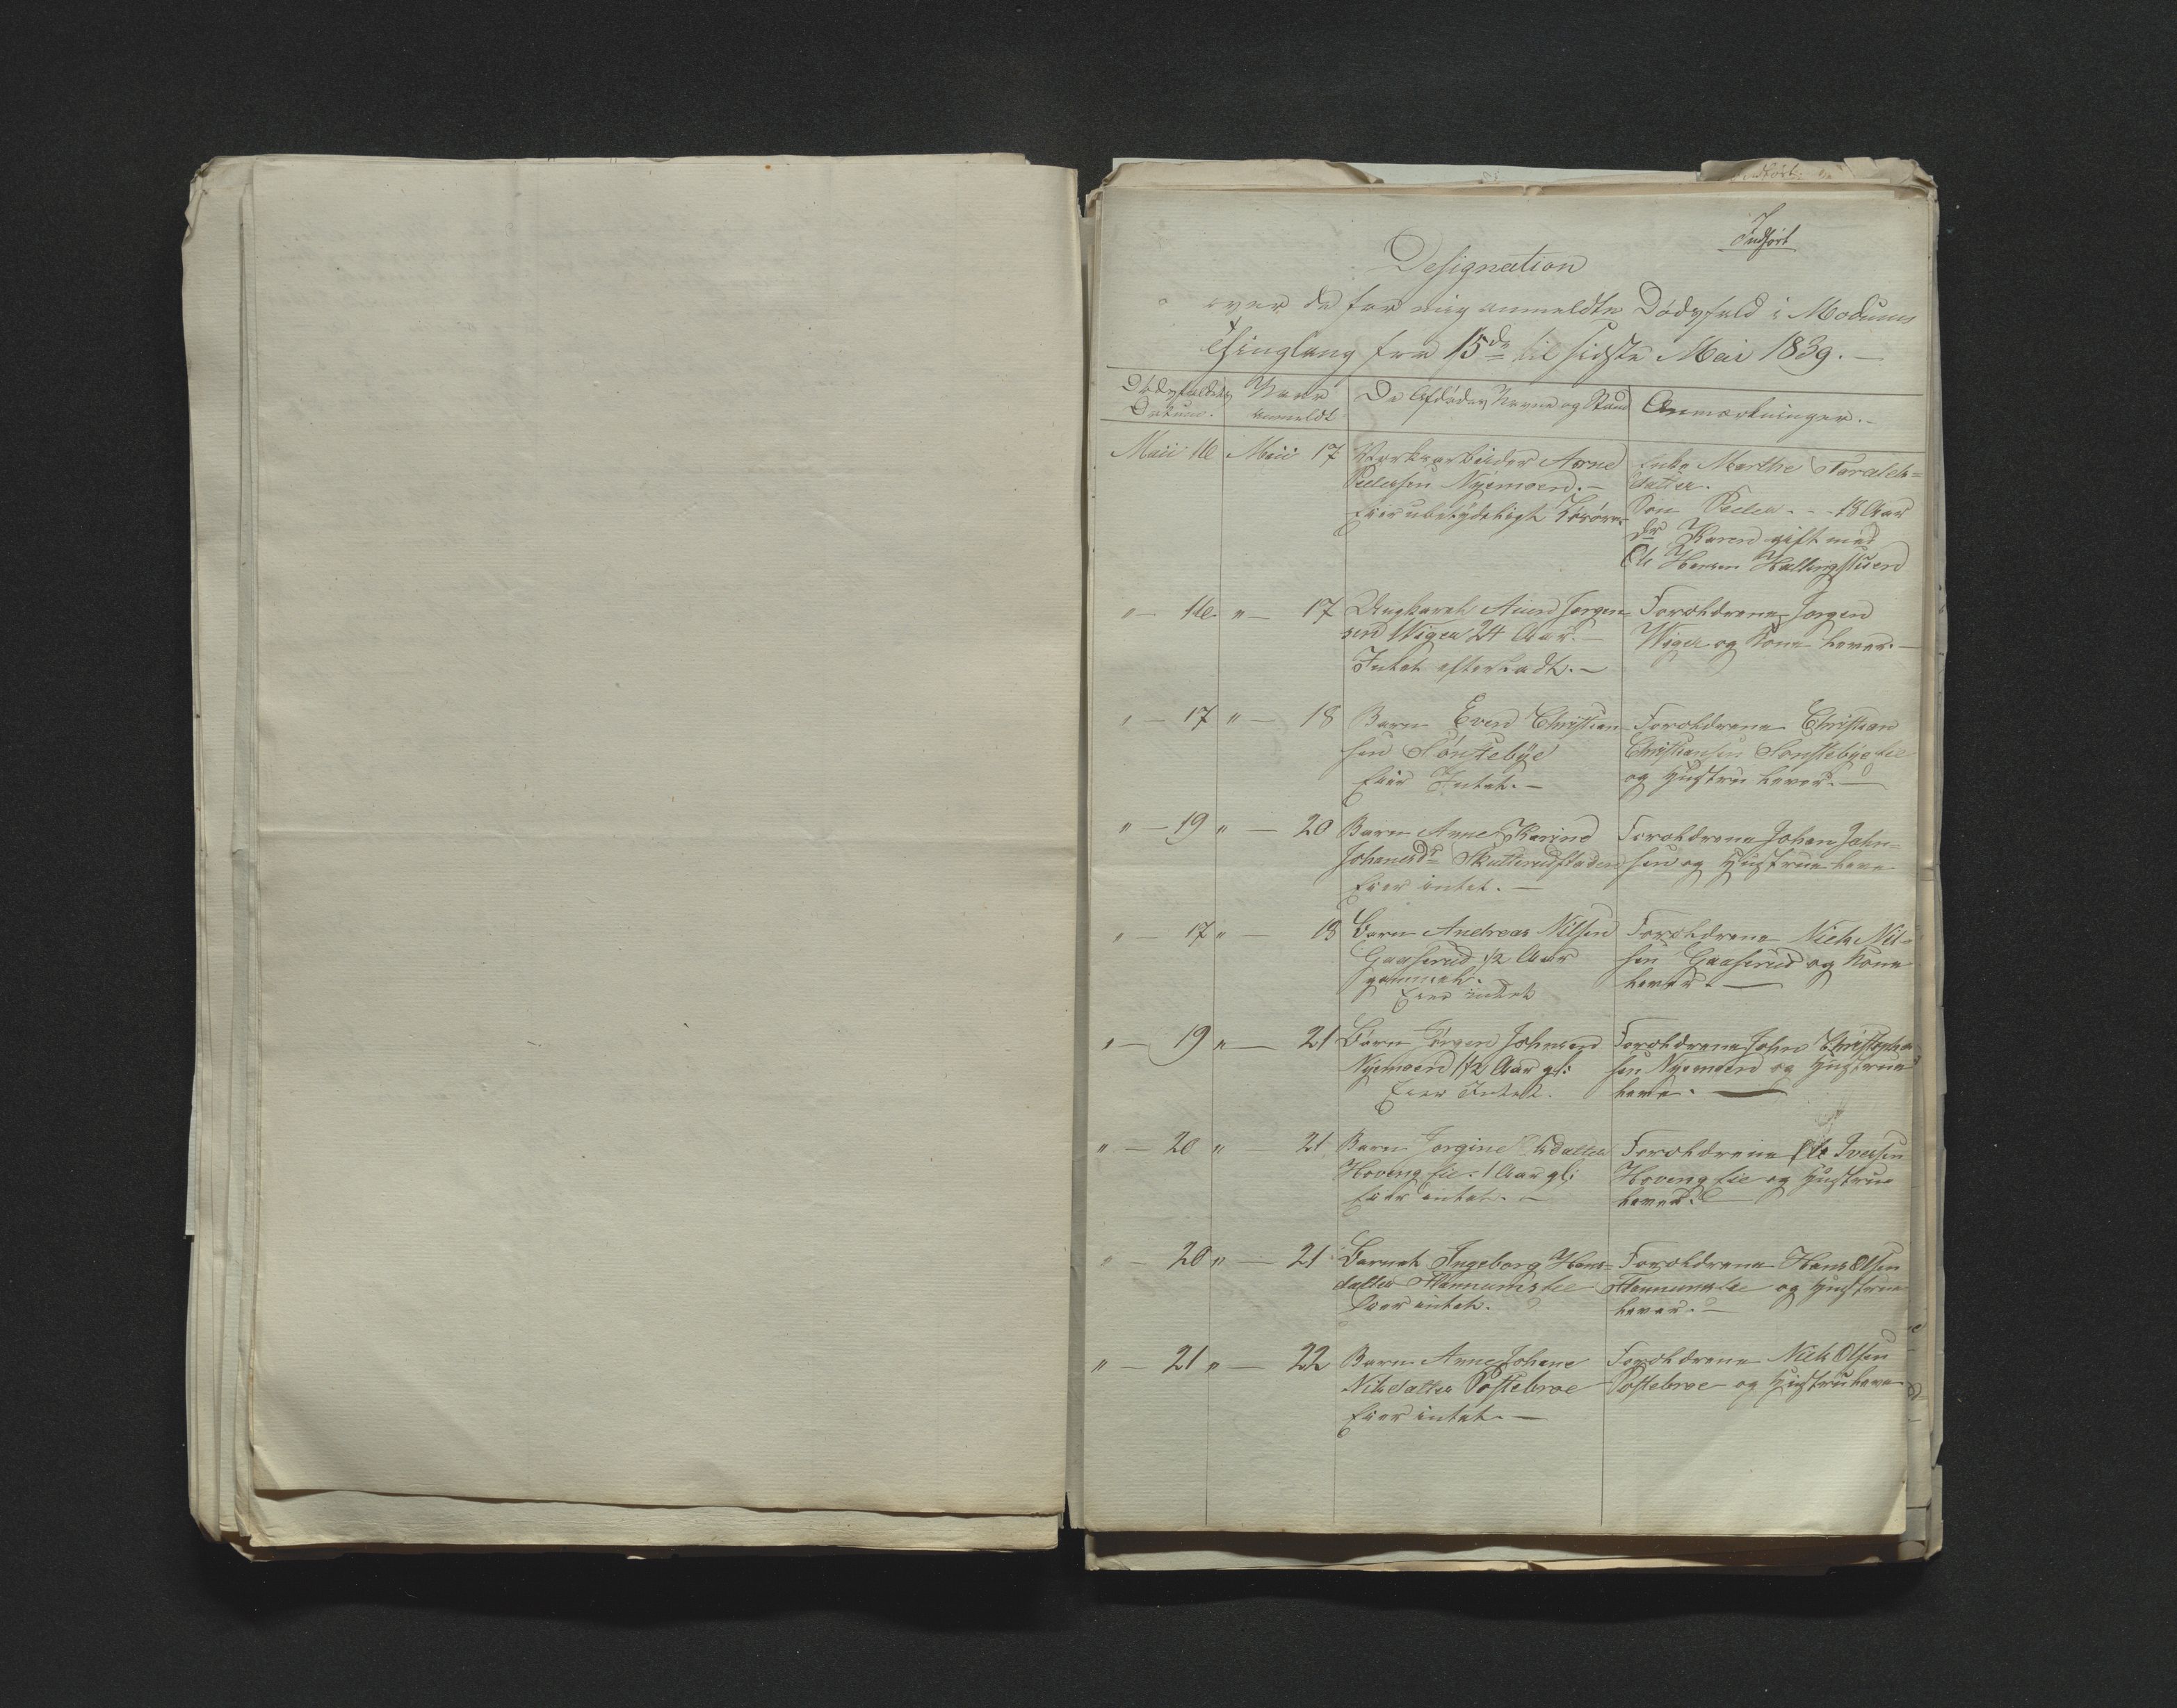 Indført
Designation
over de for mig anmeldte Dødsfald i Modums
Thinglaug fra 15de til sidste Mai 1839. —
Dødsfaldets Datum. Naar anmeldt De Afdødes Navne og Stand Anmærkninger. -
Maii 16 Maii 17 Værksarbeider Arne
Pedersen Nyemoen. —
Eier ubetydeligt
Enke Marthe Taralds=
datter.
Søn Peder - - - 18 Aar
Dr Karen gift med
Ole Hansen Hallingstuen
" — 16 " — 17 Ungkarl Aind Jørgen
sen Wiger 24 Aar. —
Intet efterladt. —
Forældrene Jørgen
Wiger og Kone lever. —
" — 17 " — 18 Barn Even Christian
sen Sønstebye
Eier Intet. —
Forældrene Christian
Christiansen Sønstebye eie
og Hustru lever. —
" — 19 " — 20 Barn Anne Karine
Johansdr Skutterudstaden
Eier intet. —
Forældrene Johan John=
sen og Hustrue leve
" — 17 " — 18 Barn Andreas Nilsen
Gaaserud 1/2 Aar
gammel.
Eier intet
Forældrene Niels Nil=
sen Gaaserud og Kone
lever. —
" — 19 " — 21 Barn Jørgen Johnsen
Nyemoen 1/2 Aar gl:
Eier Intet.
Forældrene John Christopher
sen Nyemoen og Hustrue
leve. —
" — 20 " — 21 Barn Jørgine datter
Hoveng eie. 1 Aar gl:
Eier intet. —
Forældrene Ole Iversen
Hoveng eie og Hustrue
lever. —
" — 20 " — 21 Barnet Ingeborg Hans=
datter Hannums eie
Eier intet.
Forældrene Hans Olsen
Hannums eie og Hustrue
lever. —
" — 21 " — 22 Barn Anne Johane
Nilsdatter Postebroe
Eier intet. —
Forældrene Niels Olsen
Postebroe og Hustru leve